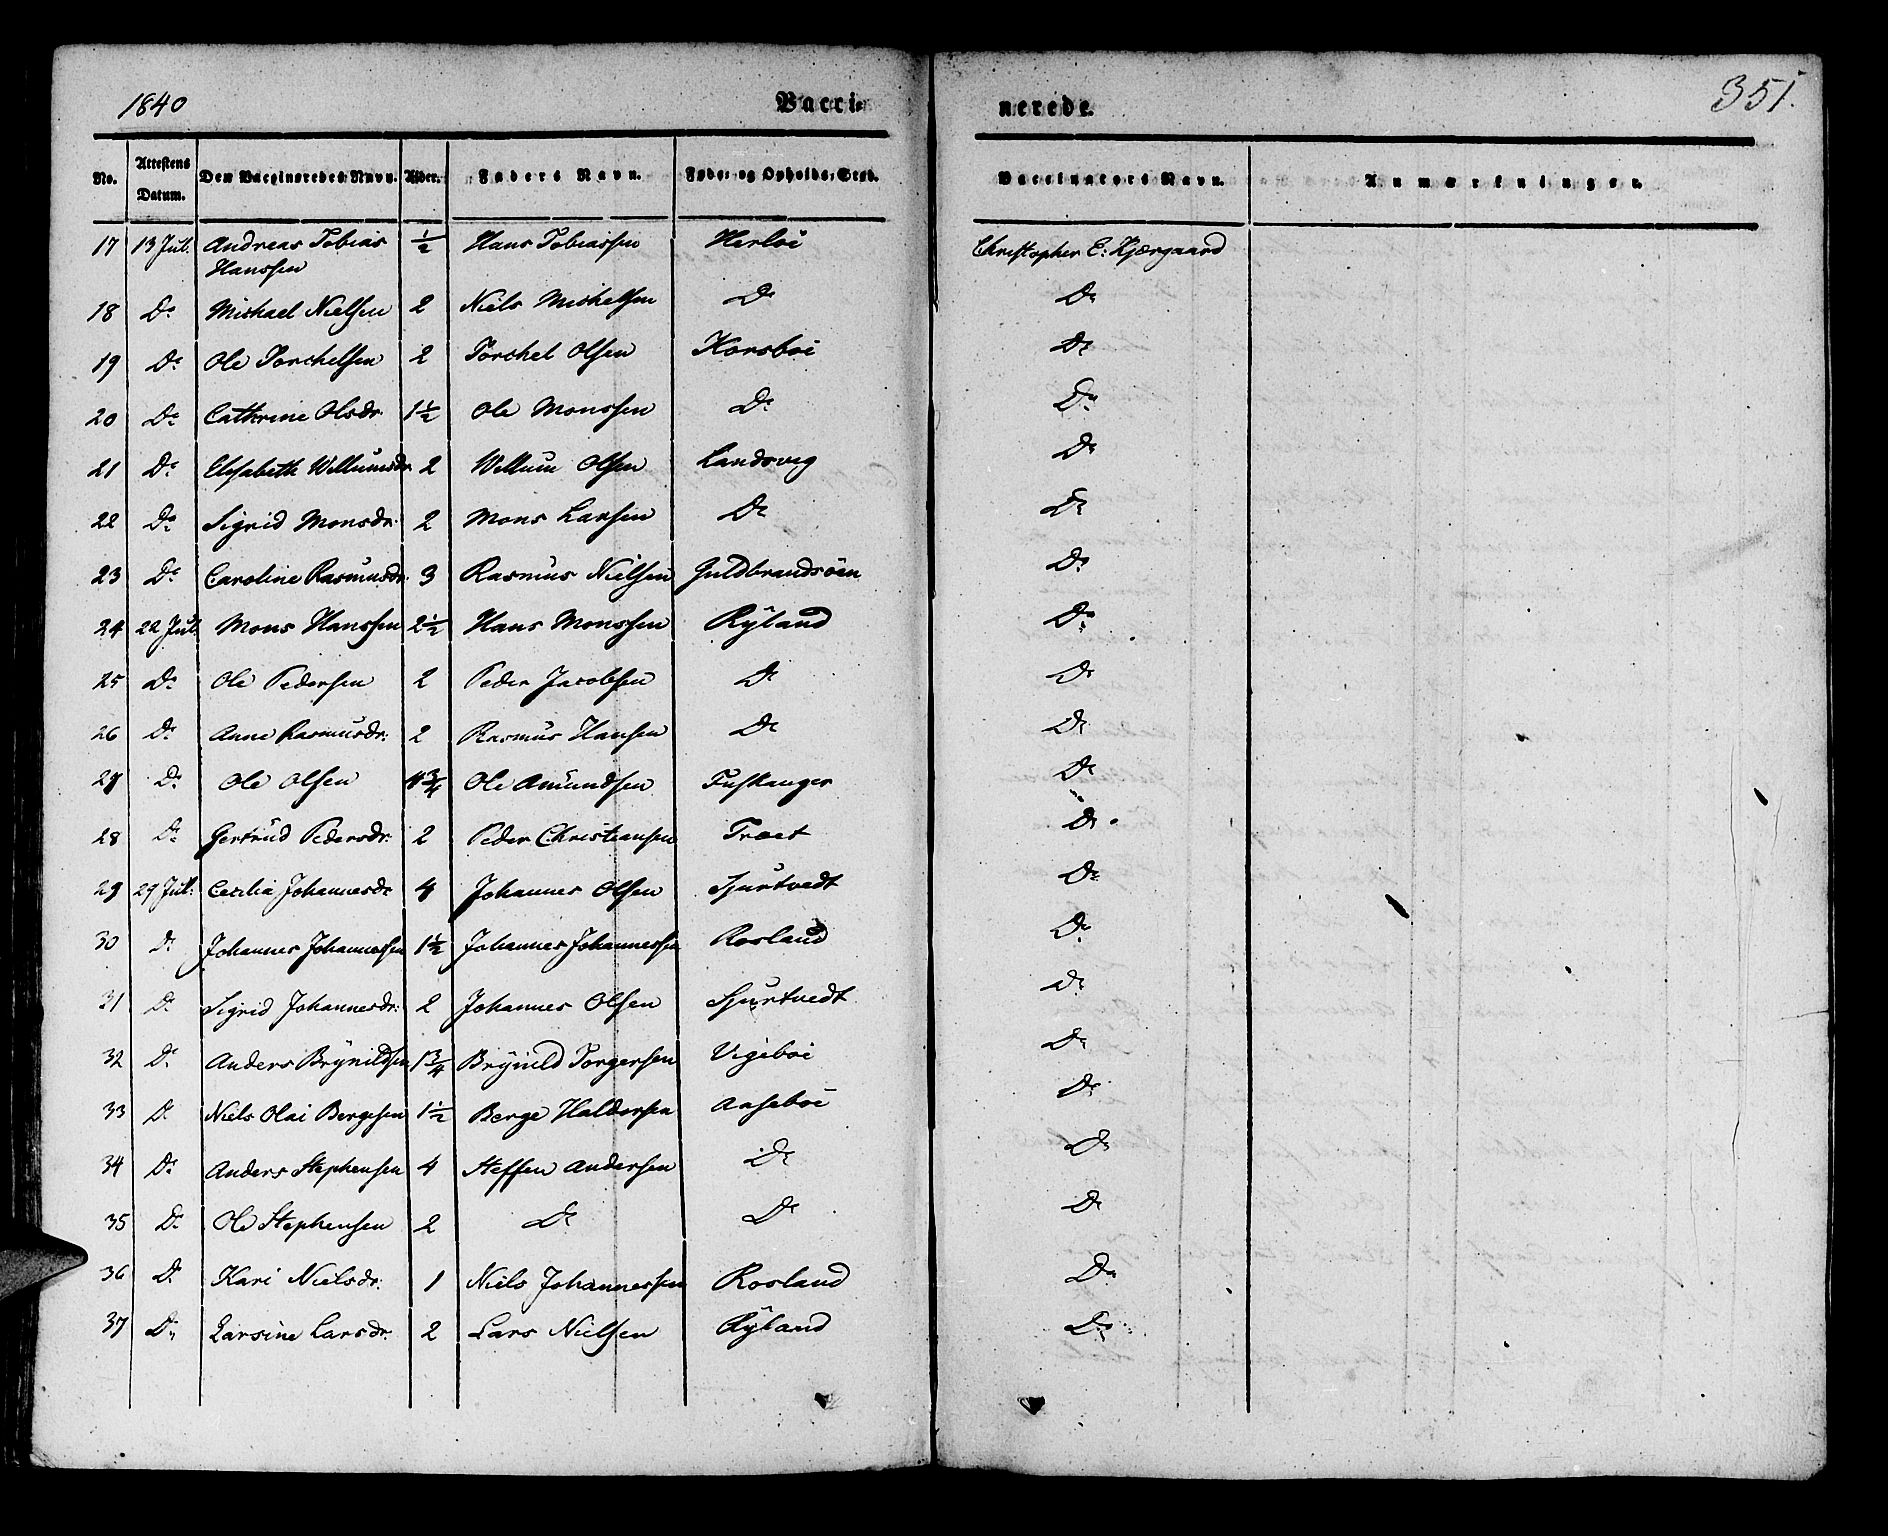 1840 Vacci- nerede. 351.
No. Attestens Datum. Den Vaccineredes Navn. Alder. Faders Navn. Føde- og Opholds-Sted. Vaccinateurs Navn. Anmærkninger.
17 13 Jul. Andreas Tobias ½ Hans Tobiassen Herløi Christopher E: Kjærgaard
Hanssen
18 Do Michael Nielsen 2 Niels Michelsen Do Do
19 Do Ole Torchelsen 2 Torchel Olsen Horsböi Do
20 Do Cathrine Olsdr 1½ Ole Monssen Do Do
21 Do Elisabeth Willumsdr 2 Willum Olsen Landsvig Do
22 Do Sigrid Monsdr. 2 Mons Larsen Do Do
23 Do Caroline Rasmusdr. 3 Rasmus Nielsen Guldbrandsöen Do
24 22 Jul. Mons Hanssen 2½ Hans Monssen Rÿland Do
25 Do Ole Pedersen 2 Peder Jacobsen Do Do
26 Do Anne Rasmusdr: 2 Rasmus Hansen Do Do
27 Do Ole Olsen ¾ Ole Amundsen Fuskanger Do
28 Do Gertrud Pedersdr. 2 Peder Christiansen Træt Do
29 29 Jul: Cecilia Johannesdr 4 Johannes Olsen Sjurtvedt Do
30 Do Johannes Johannessen 1½ Johannes Johannessen Rosland Do
31 Do Sigrid Johannesdr: 2 Johannes Olsen Sjurtvedt Do
32 Do Anders Brÿnildsen 1¾ Brÿnild Torgersen Vigeböi Do
33 Do Niels Olai Bergesen 1½ Berge Haldorsen Anseböi Do
34 Do Anders Stephensen 4 Steffen Andersen Do Do
35 Do Ole Stephensen 2 Do Do Do
36 Do Kari Nielsdr. 1 Niels Johannessen Rosland Do
37 Do Larsine Larsdr. 2 Lars Nielsen Rÿland Do